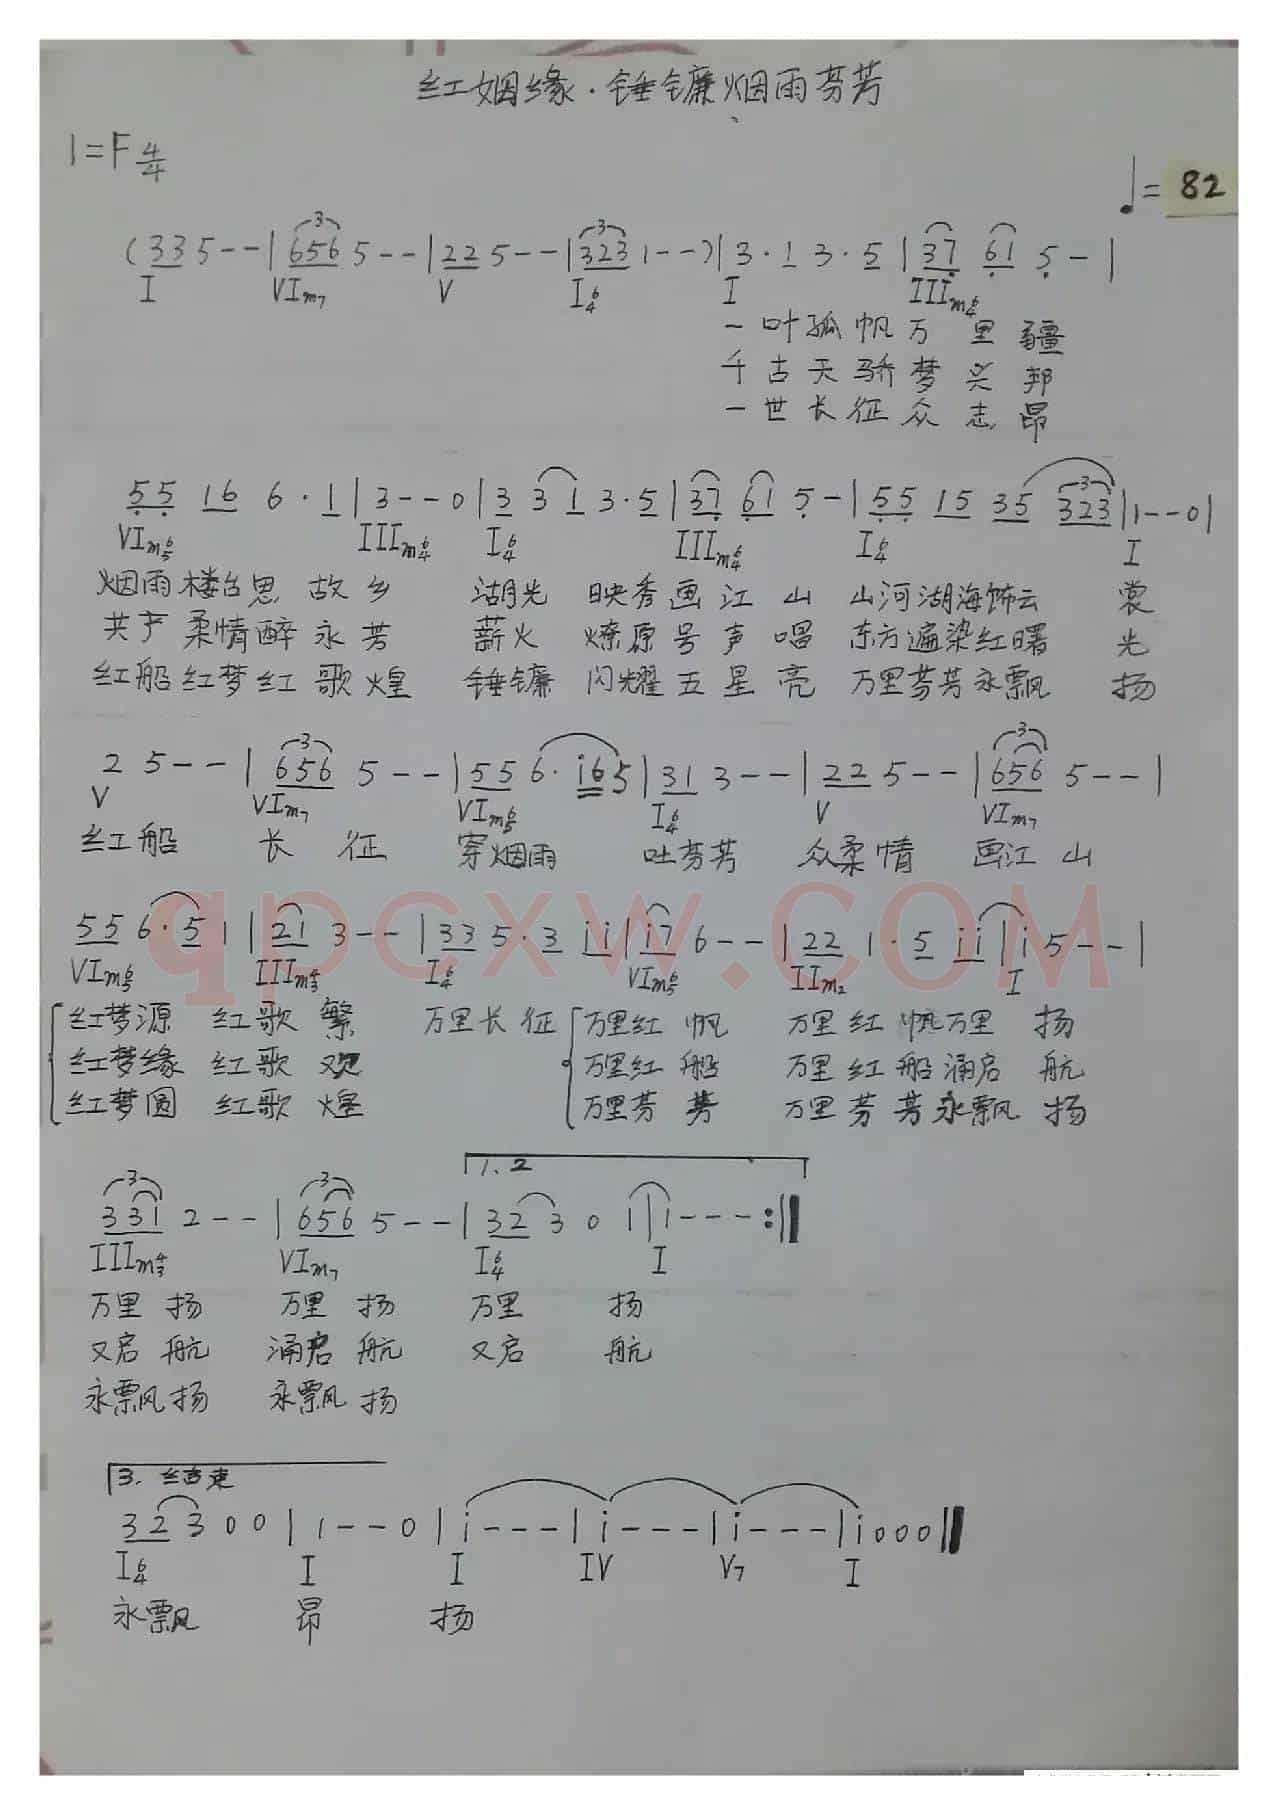 红姻缘·锤镰烟雨芬芳
1=F 4/4
♩= 82
(3 3 5 - - | 6 5 6 5 - - | 2 2 5 - - | 3 2 3 1 - - ) | 3 · 1 3 · 5 | 3 7 6 1 5 - |
I VIm7 V I6/4 I IIIm6/4
一叶孤帆万里疆
千古天骄梦兴邦
一世长征众志昂
5 5 1 6 6 · 1 | 3 - - 0 | 3 3 1 3 · 5 | 3 7 6 1 5 - | 5 5 1 5 3 5 3 2 3 | 1 - - 0 |
VIm6/5 IIIm6/4 I6/4 IIIm6/4 I6/4 I
烟雨楼台思故乡 湖光映秀画江山 山河湖海饰云裳
共产柔情醉永芳 薪火燎原号声唱 东方遍染红曙光
红船红梦红歌煌 锤镰闪耀五星亮 万里芬芳永飘扬
2 5 - - | 6 5 6 5 - - | 5 5 6 · i 6 5 | 3 1 3 - - | 2 2 5 - - | 6 5 6 5 - - |
V VIm7 VIm6/5 I6/4 V VIm7
红船 长征 穿烟雨 吐芬芳 众柔情 画江山
5 5 6 · 5 1 | 2 1 3 - - | 3 3 5 · 3 i i | i 7 6 - - | 2 2 1 · 5 i i | i 5 - - |
VIm6/5 IIIm4/3 I6/4 VIm6/5 IIm2 I
qpcxw.COM
红梦源 红歌繁 万里长征 万里红帆 万里红帆万里扬
红梦缘 红歌观 万里红船 万里红船涌启航
红梦圆 红歌煌 万里芬芳 万里芬芳永飘扬
1. 2
3 3 1 2 - - | 6 5 6 5 - - | 3 2 3 0 1 | 1 - - - :||
IIIm4/3 VIm7 I6/4 I
万里扬 万里扬 万里 扬
又启航 涌启航 又启 航
永飘扬 永飘扬
3. 结束
3 2 3 0 0 | 1 - - 0 | i - - - | i - - - | i - - - | i 0 0 0 ||
I6/4 I I IV V7 I
永飘 昂 扬